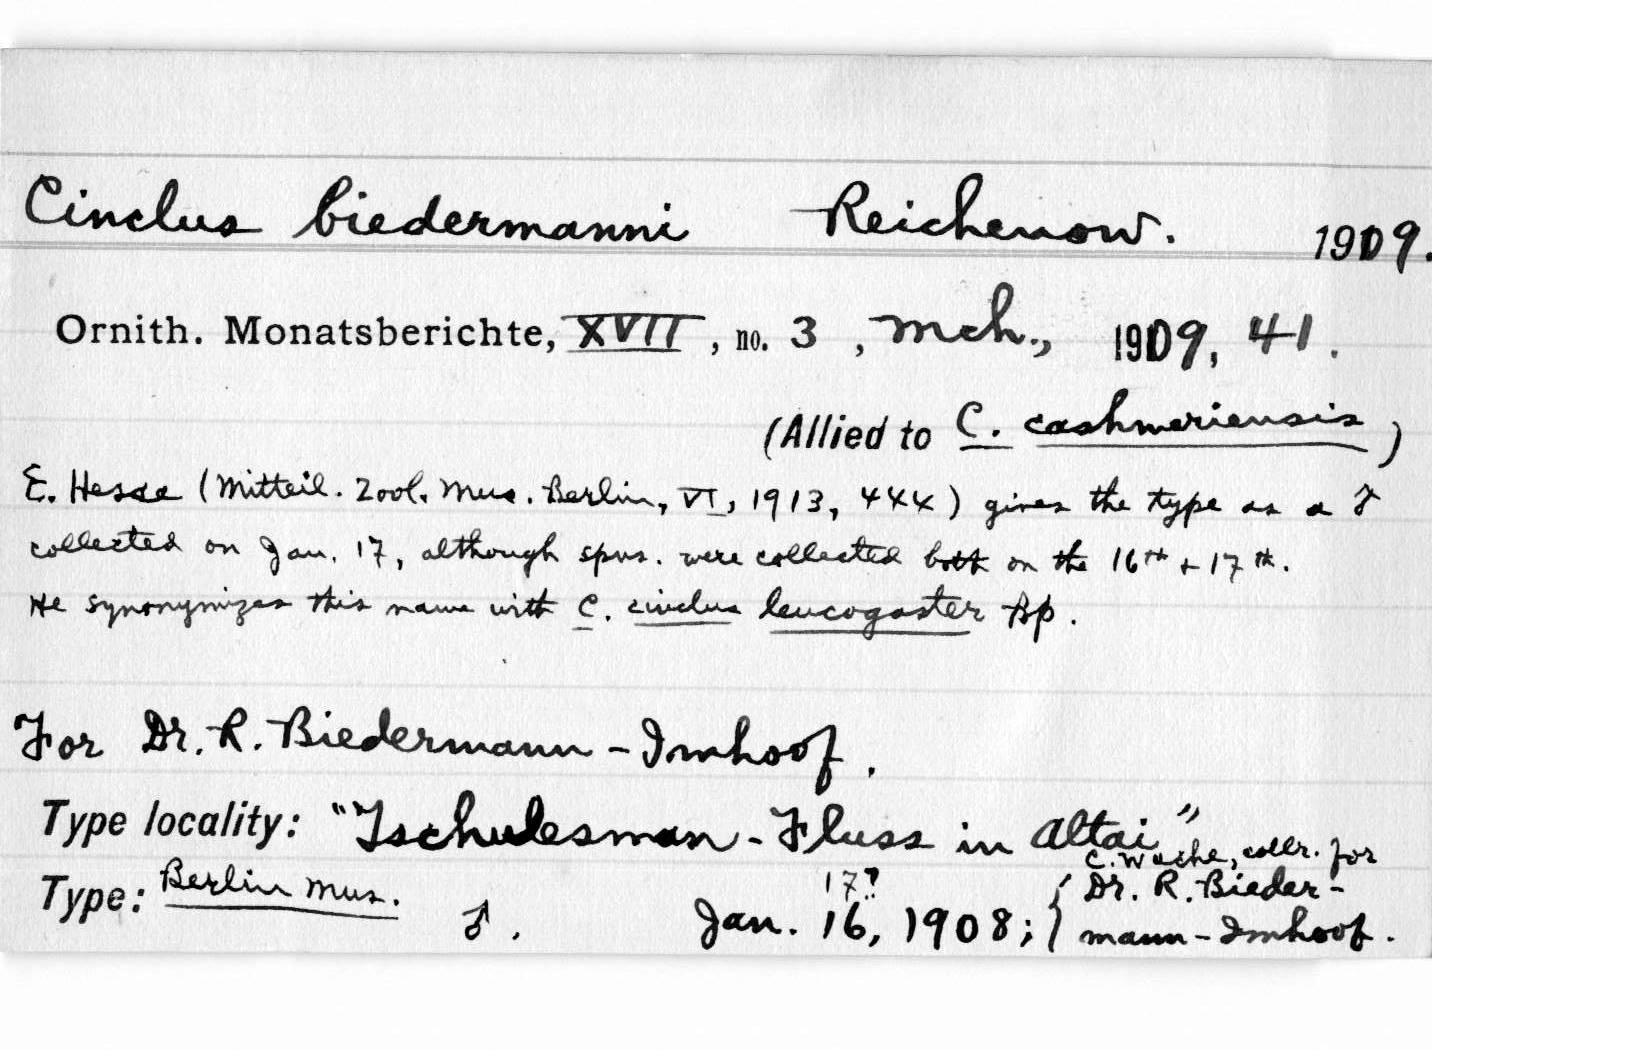 Cinclus biedermanni Reichenow. 1909.
Ornith. Monatsberichte, XVII, no. 3, Mch., 1909, 41.
(Allied to C. cashmeriensis)
E. Hesse (Mitteil. Zool. Mus. Berlin, VI, 1913, 444) gives the type as a ♂
collected on Jan. 17, although spms. were collected both on the 16th + 17th.
He synonymizes this name with C. cinclus leucogaster Bp.
For Dr. R. Biedermann-Imhoof.
Type locality: "Tschulesman-Fluss in Altai"
Type: Berlin Mus. ♂. Jan. 16, 1908; {
17?
C. Wache, collr. for
Dr. R. Bieder-
mann-Imhoof.